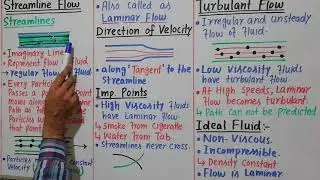 Streamline Flow
Streamlines
• Imaginary Line
• Represent flow Fluid
→ regular flow Fluid
• Every Particle
Passes a Point
moves along same
Path as
Particles
that Point
• Particles
Constant
Velocity
• Also called as
Laminar Flow
Direction of Velocity
→ along "Tangent" to the
Streamline.
Imp. Points
• High Viscosity fluids
have Laminar Flow.
→ Smoke from Cigerette
→ Water from Tab.
• Streamlines never cross.
Turbulant Flow
• Irregular and unsteady
flow of Fluid.
• Low viscosity fluids
have turbulant flow
• At High Speeds, Laminar
flow becomes turbulant.
• Path can not be predicted
Ideal Fluid:-
• Non-Viscous.
• Incompressible.
→ Density Constant
• Flow is Laminar